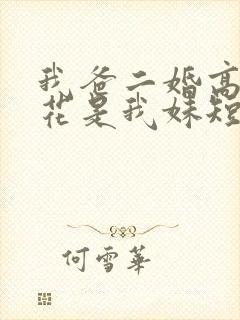 我爸二婚高
花是我妹短
何雪華